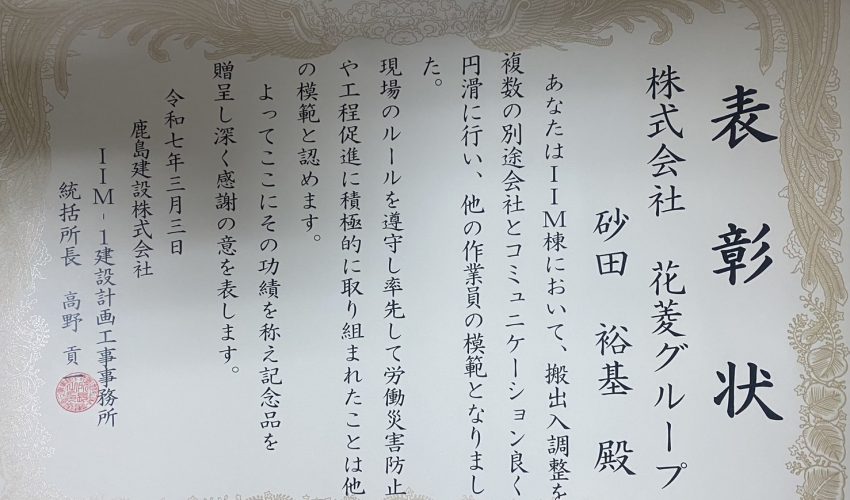 表彰状
株式会社 花菱グループ
砂田 裕基 殿
あなたはIIM棟において、搬出入調整を
複数の別途会社とコミュニケーション良く
円滑に行い、他の作業員の模範となりまし
た。
現場のルールを遵守し率先して労働災害防止
や工程促進に積極的に取り組まれたことは他
の模範と認めます。
よってここにその功績を称え記念品を
贈呈し深く感謝の意を表します。
令和七年三月三日
鹿島建設株式会社
IIM-1建設計画工事事務所
統括所長 高野 貢